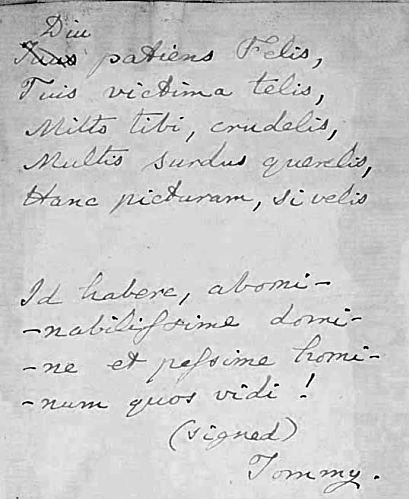 Diu
Tuus patiens Felis,
Tuis victima telis,
Mitto tibi, crudelis,
Multis surdus querelis,
Hanc picturam, si velis
Id habere, abomi-
-nabiliſsime domi-
-ne et peſsime homi-
-num quos vidi!
(signed)
Tommy.